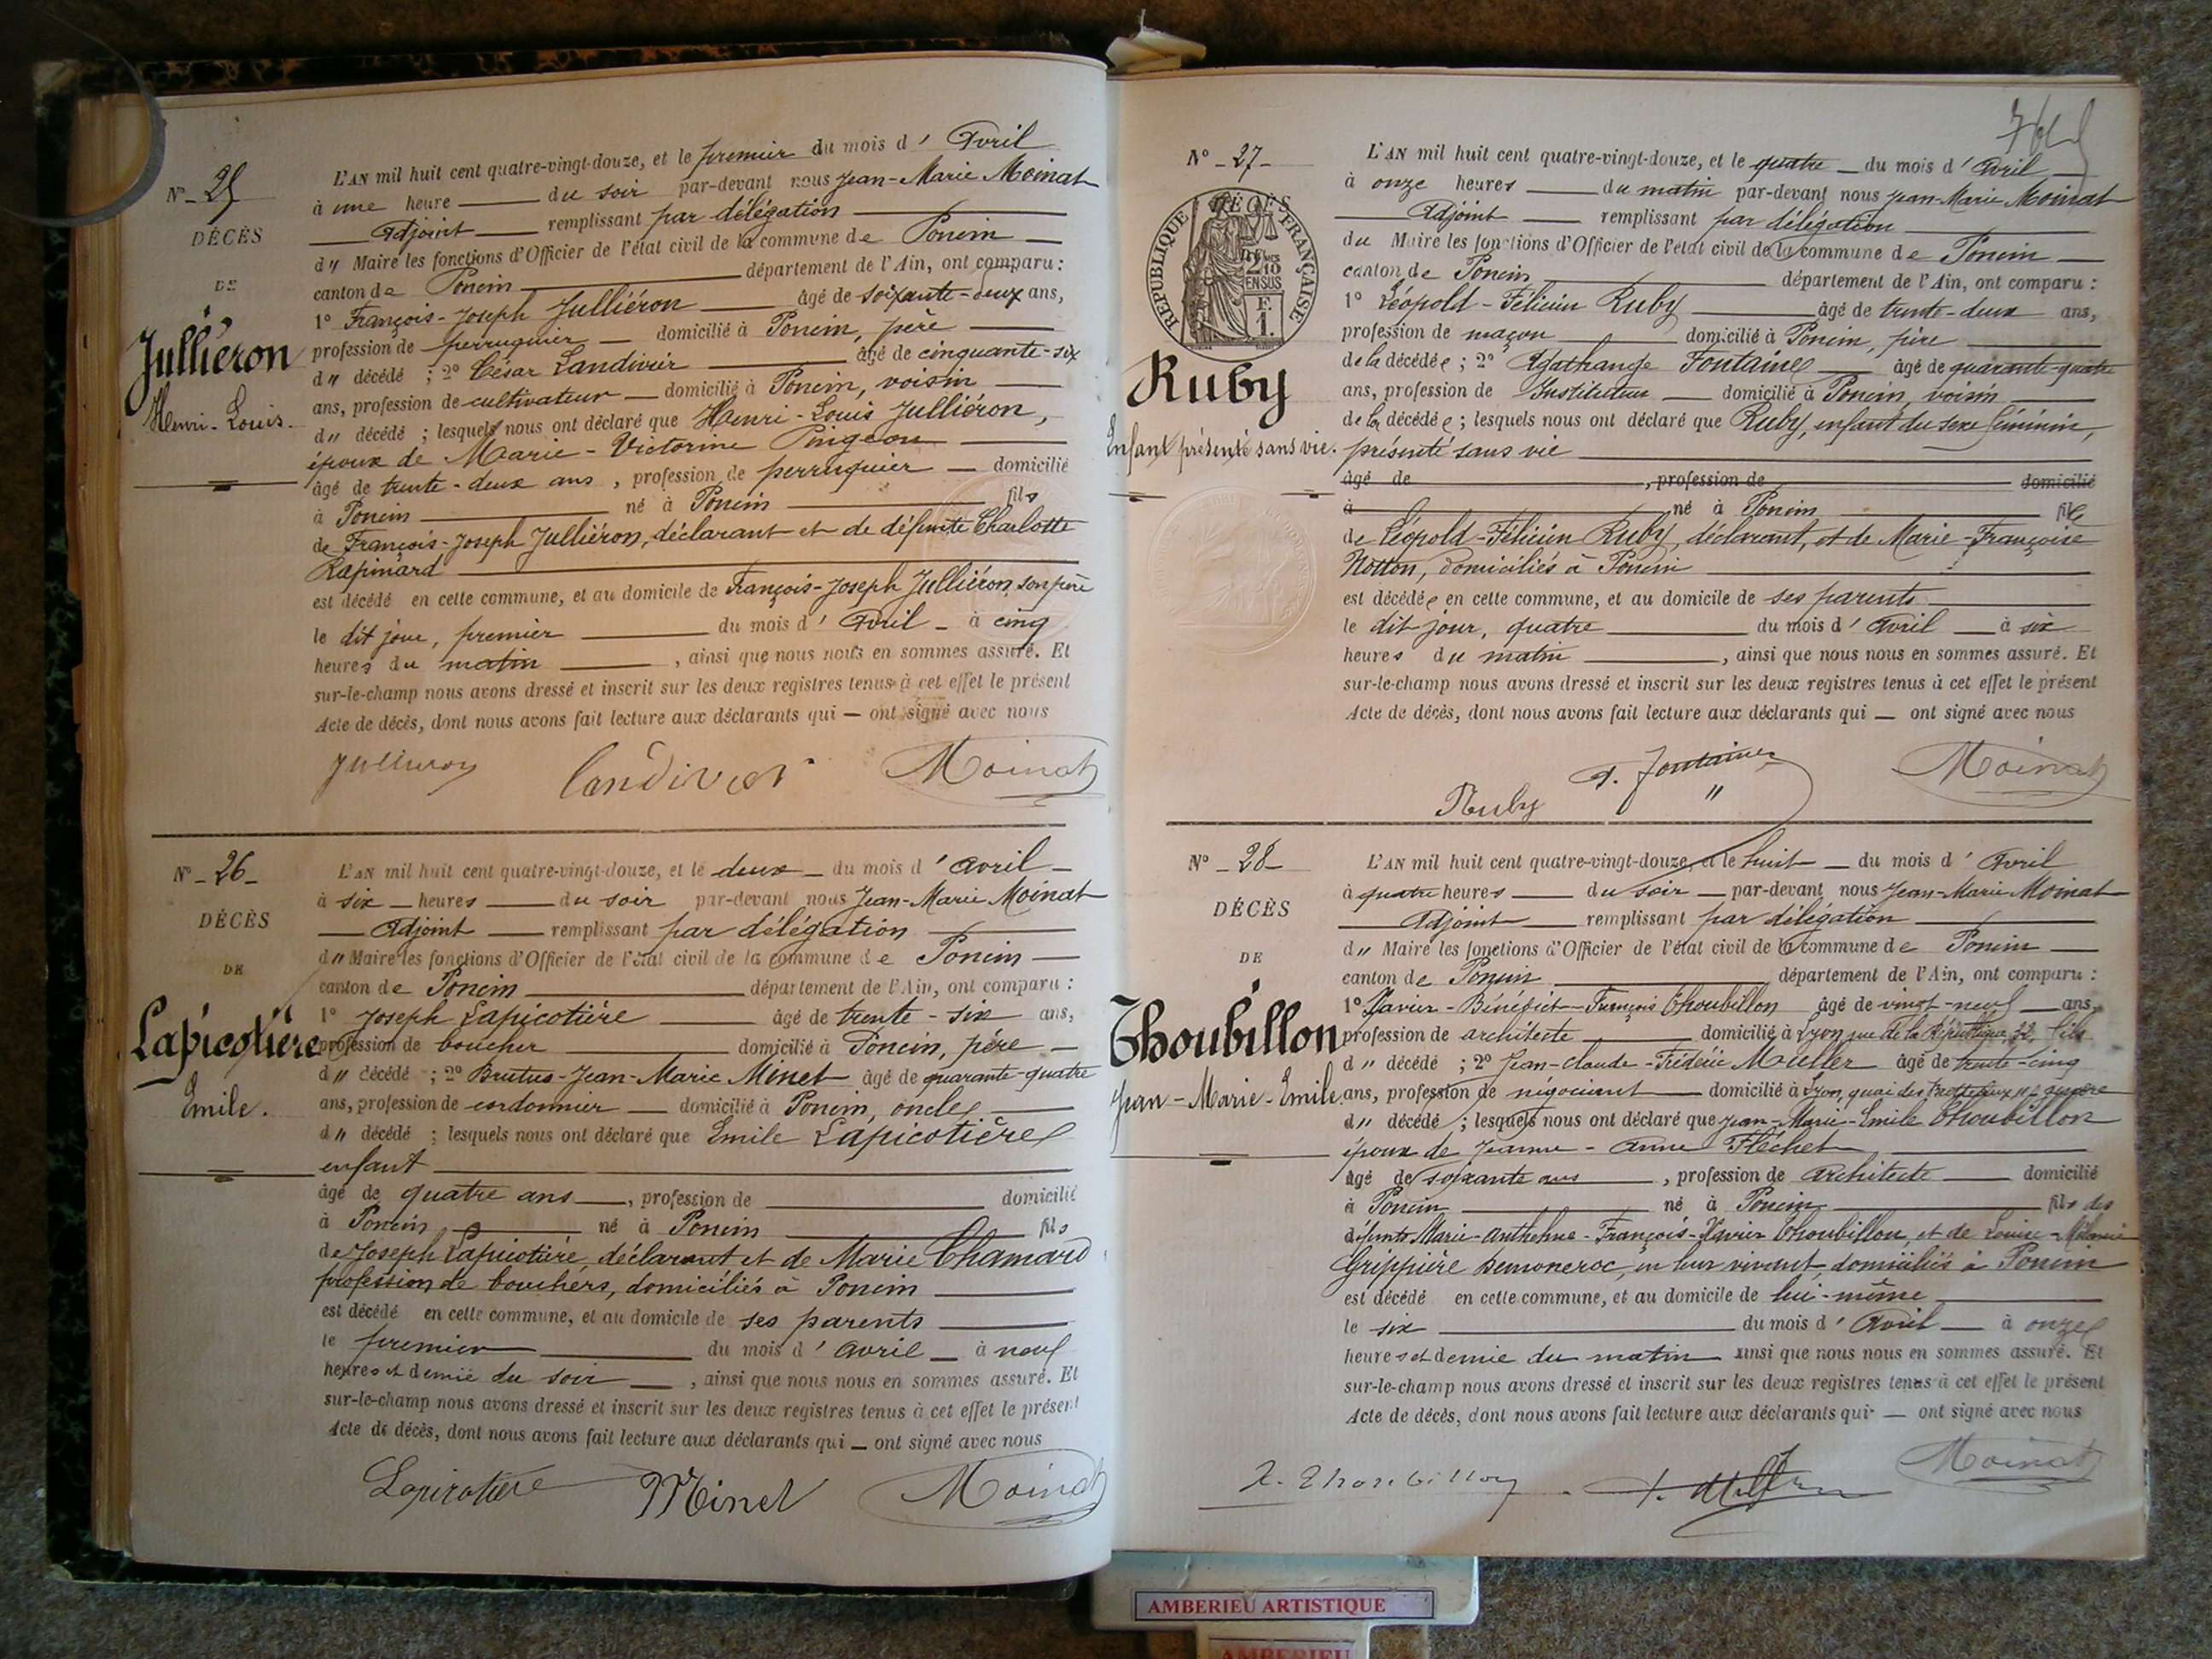 N° - 25
DÉCÈS
DE
Julliéron
Henri-Louis.
L'AN mil huit cent quatre-vingt-douze, et le premier du mois d' Avril
à une heure du soir par-devant nous Jean-Marie Moinat
Adjoint remplissant par délégation
d" Maire les fonctions d'Officier de l'état civil de la commune de Poncin
canton de Poncin département de l'Ain, ont comparu :
1° François-Joseph Julliéron âgé de soixante-deux ans,
profession de perruquier domicilié à Poncin, père
d" décédé ; 2° César Landivier âgé de cinquante-six
ans, profession de cultivateur domicilié à Poncin, voisin
d" décédé ; lesquels nous ont déclaré que Henri-Louis Julliéron,
époux de Marie-Victorine Pingeon
âgé de trente-deux ans, profession de perruquier domicilié
à Poncin né à Poncin fils
de François-Joseph Julliéron, déclarant et de défunte Charlotte
Rapinard
est décédé en cette commune, et au domicile de François-Joseph Julliéron, son père
le dit jour, premier du mois d' Avril à cinq
heures du matin, ainsi que nous nous en sommes assuré. Et
sur-le-champ nous avons dressé et inscrit sur les deux registres tenus à cet effet le présent
Acte de décès, dont nous avons fait lecture aux déclarants qui — ont signé avec nous
Julliéron Landivier Moinat
N° - 26 -
DÉCÈS
DE
Lapicotière
Emile.
L'AN mil huit cent quatre-vingt-douze, et le deux du mois d' Avril
à six heures du soir par-devant nous Jean-Marie Moinat
Adjoint remplissant par délégation
d" Maire les fonctions d'Officier de l'état civil de la commune de Poncin
canton de Poncin département de l'Ain, ont comparu :
1° Joseph Lapicotière âgé de trente-six ans,
profession de boucher domicilié à Poncin, père
d" décédé ; 2° Brutus-Jean-Marie Minet âgé de quarante-quatre
ans, profession de cordonnier domicilié à Poncin, oncle
d" décédé ; lesquels nous ont déclaré que Emile Lapicotière
enfant
âgé de quatre ans, profession de domicilié
à Poncin né à Poncin fils
de Joseph Lapicotière, déclarant et de Marie Chamard
profession de bouchers, domiciliés à Poncin
est décédé en cette commune, et au domicile de ses parents
le premier du mois d' Avril à neuf
heures et demie du soir, ainsi que nous nous en sommes assuré. Et
sur-le-champ nous avons dressé et inscrit sur les deux registres tenus à cet effet le présent
Acte de décès, dont nous avons fait lecture aux déclarants qui — ont signé avec nous
Lapicotière Minet Moinat
N° - 27 -
RÉPUBLIQUE FRANÇAISE
2/10 EN SUS
F. 1.
Ruby
Enfant présenté sans vie.
L'AN mil huit cent quatre-vingt-douze, et le quatre du mois d' Avril
à onze heures du matin par-devant nous Jean-Marie Moinat
Adjoint remplissant par délégation
du Maire les fonctions d'Officier de l'état civil de la commune de Poncin
canton de Poncin département de l'Ain, ont comparu :
1° Léopold-Félicien Ruby âgé de trente-deux ans,
profession de maçon domicilié à Poncin, père
de la décédée ; 2° Agathange Fontaine âgé de quarante-quatre
ans, profession de Instituteur domicilié à Poncin, voisin
de la décédée ; lesquels nous ont déclaré que Ruby, enfant du sexe féminin,
présenté sans vie
âgé de , profession de domicilié
à né à Poncin fille
de Léopold-Félicien Ruby, déclarant, et de Marie-Françoise
Notton, domiciliés à Poncin
est décédée en cette commune, et au domicile de ses parents
le dit jour, quatre du mois d' Avril à six
heures du matin, ainsi que nous nous en sommes assuré. Et
sur-le-champ nous avons dressé et inscrit sur les deux registres tenus à cet effet le présent
Acte de décès, dont nous avons fait lecture aux déclarants qui — ont signé avec nous
Ruby A. Fontaine Moinat
N° - 28 -
DÉCÈS
DE
Thoubillon
Jean-Marie-Emile.
L'AN mil huit cent quatre-vingt-douze, et le huit du mois d' Avril
à quatre heures du soir par-devant nous Jean-Marie Moinat
Adjoint remplissant par délégation
d" Maire les fonctions d'Officier de l'état civil de la commune de Poncin
canton de Poncin département de l'Ain, ont comparu :
1° Xavier-Bénédict-François Thoubillon âgé de vingt-neuf ans,
profession de architecte domicilié à Lyon rue de la République, 32, fils
d" décédé ; 2° Jean-Claude-Frédéric Muller âgé de trente-cinq
ans, profession de négociant domicilié à Lyon, quai des Brotteaux gendre
d" décédé ; lesquels nous ont déclaré que Jean-Marie-Emile Thoubillon
époux de Jeanne-Anne Fléchet
âgé de soixante ans, profession de Architecte domicilié
à Poncin né à Poncin fils des
défunts Marie-Anthelme-François-Xavier Thoubillon, et de Louise-Mélanie
Grippière en leur vivant, domiciliés à Poncin
est décédé en cette commune, et au domicile de lui-même
le six du mois d' Avril à onze
heures et demie du matin ainsi que nous nous en sommes assuré. Et
sur-le-champ nous avons dressé et inscrit sur les deux registres tenus à cet effet le présent
Acte de décès, dont nous avons fait lecture aux déclarants qui — ont signé avec nous
X. Thoubillon Moinat
AMBERIEU ARTISTIQUE
AMBERIEU